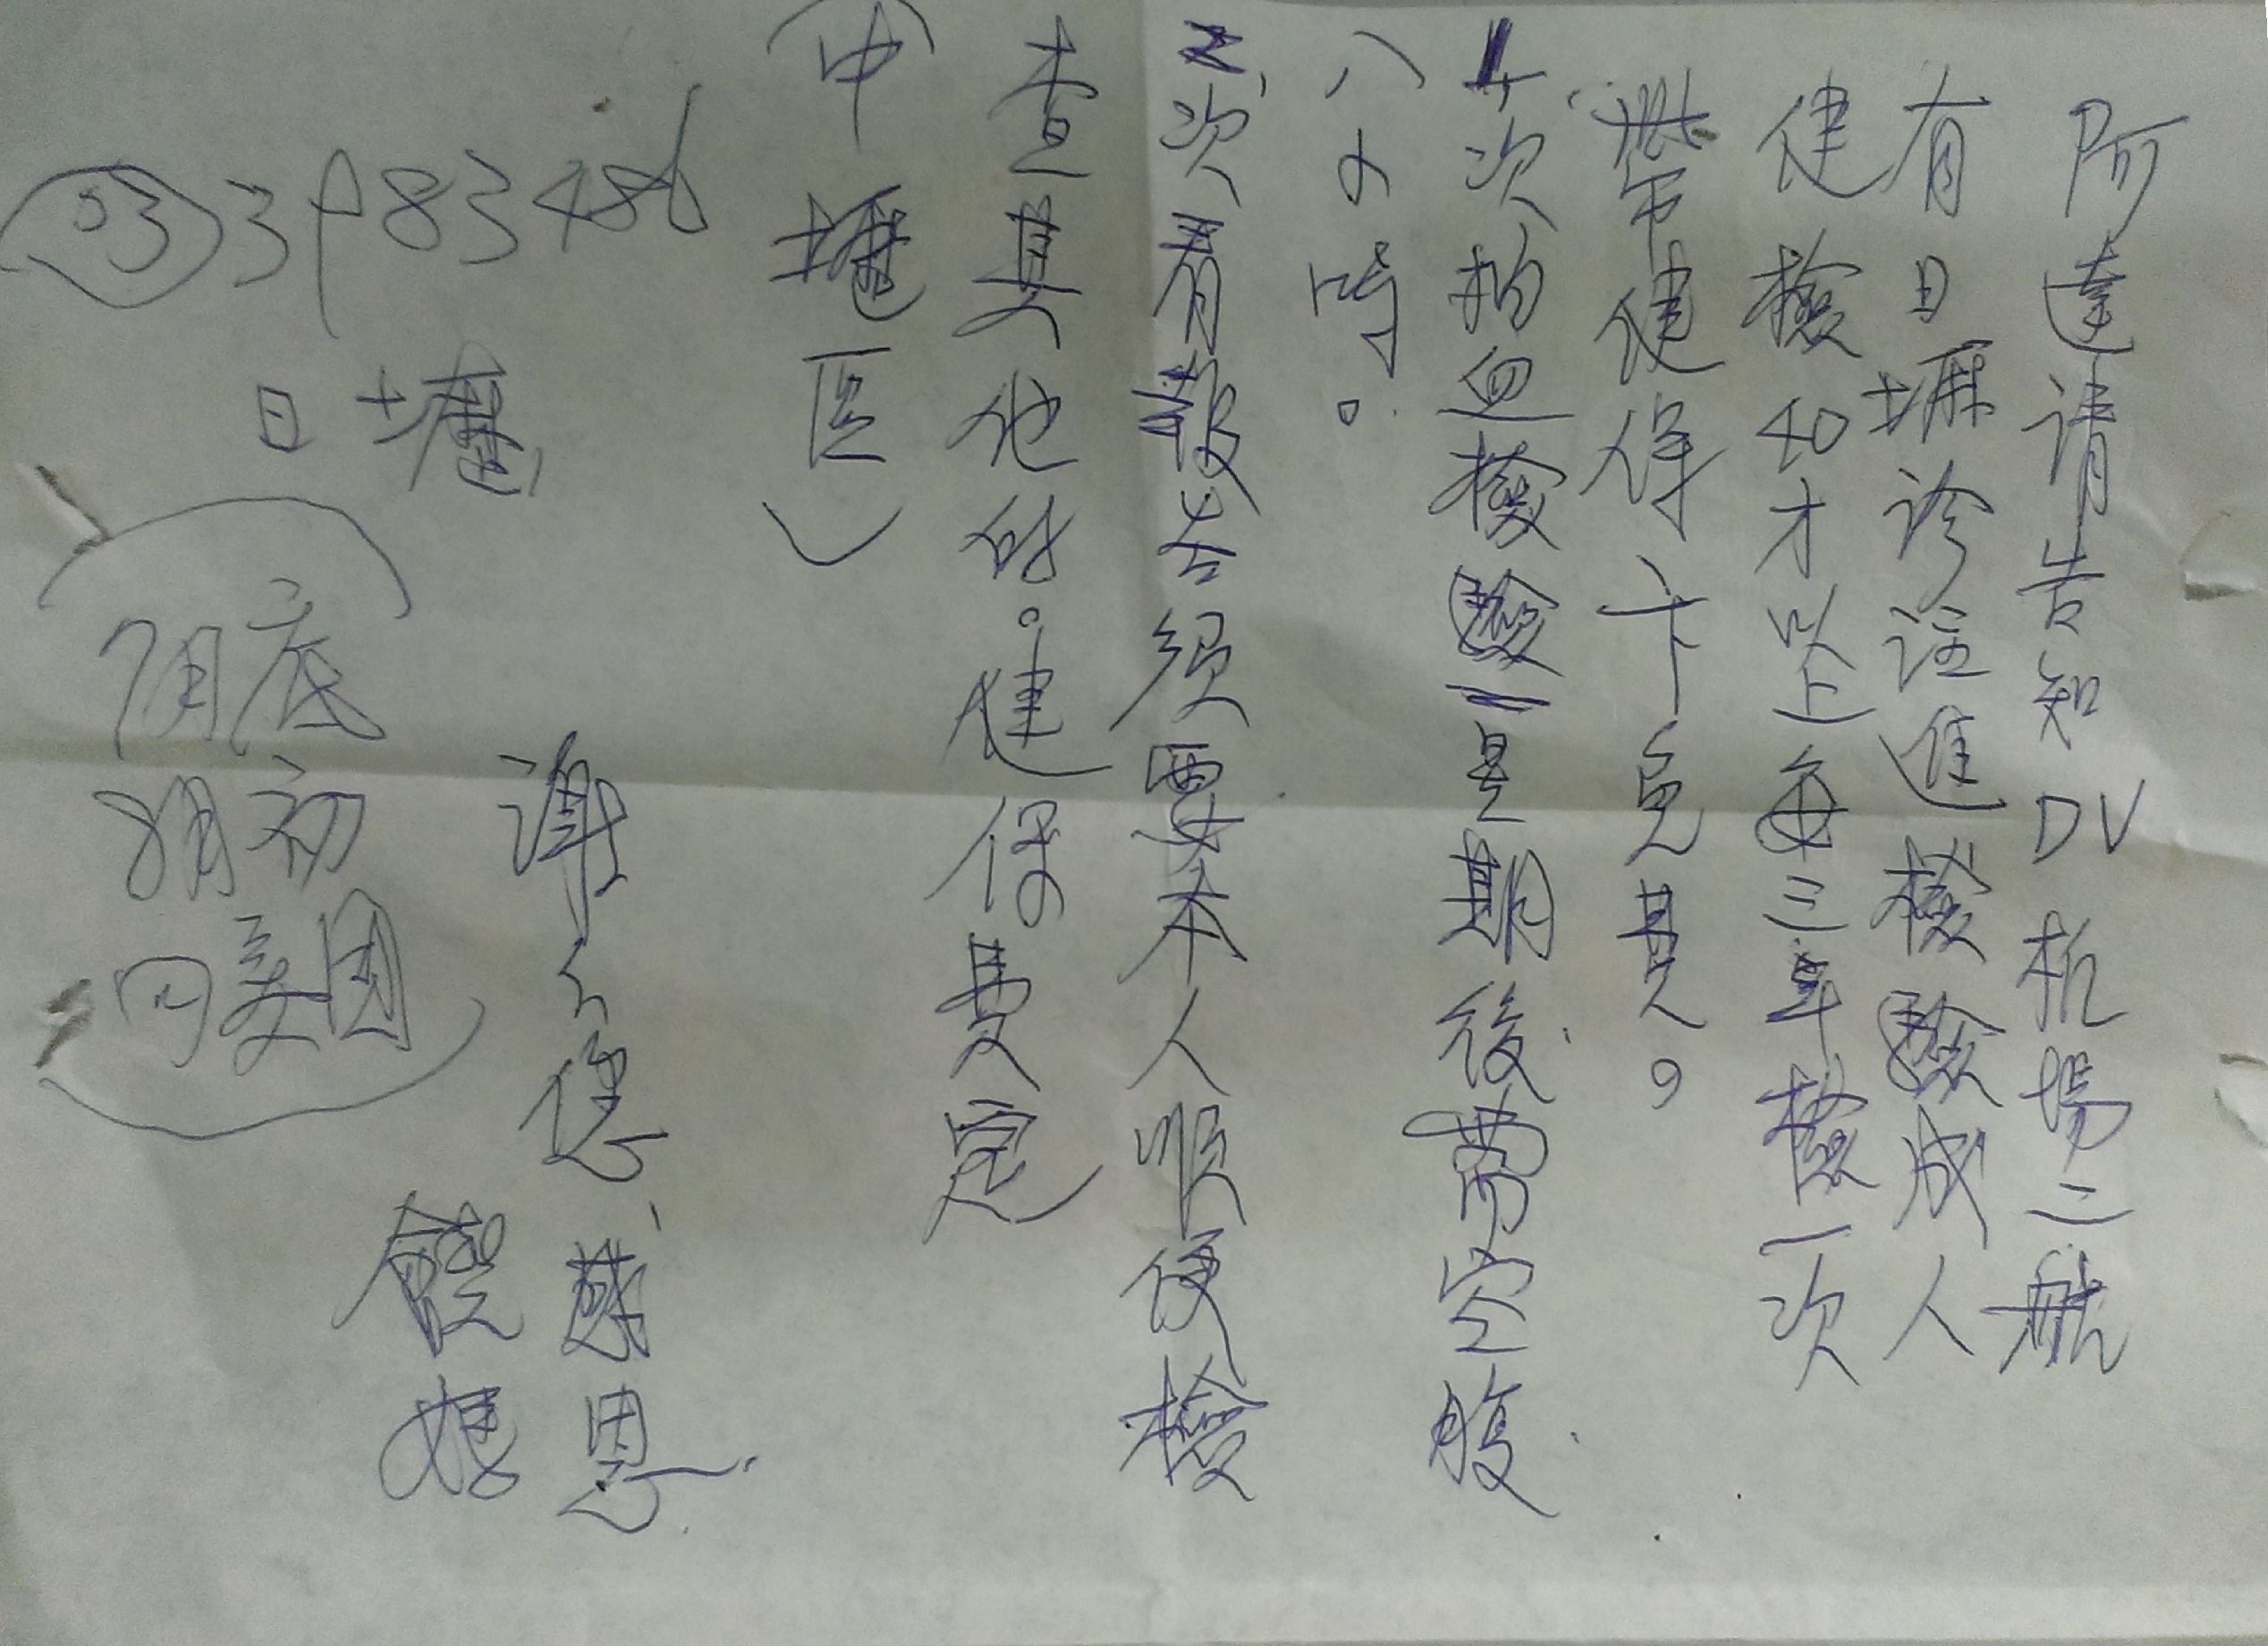 阿達请告知DV机場二航
有日堀診註進檢驗成人
健檢40才以上每三年檢一次
帶健保卡免費。
1次抽血檢驗一星期後需空腹
八小時。
2、次看報告須要本人順便檢
查其他的。健保費定
(中壢医)
033983486
日壢
(7月底
8月初
回美国)
謝谢您、感恩
媽